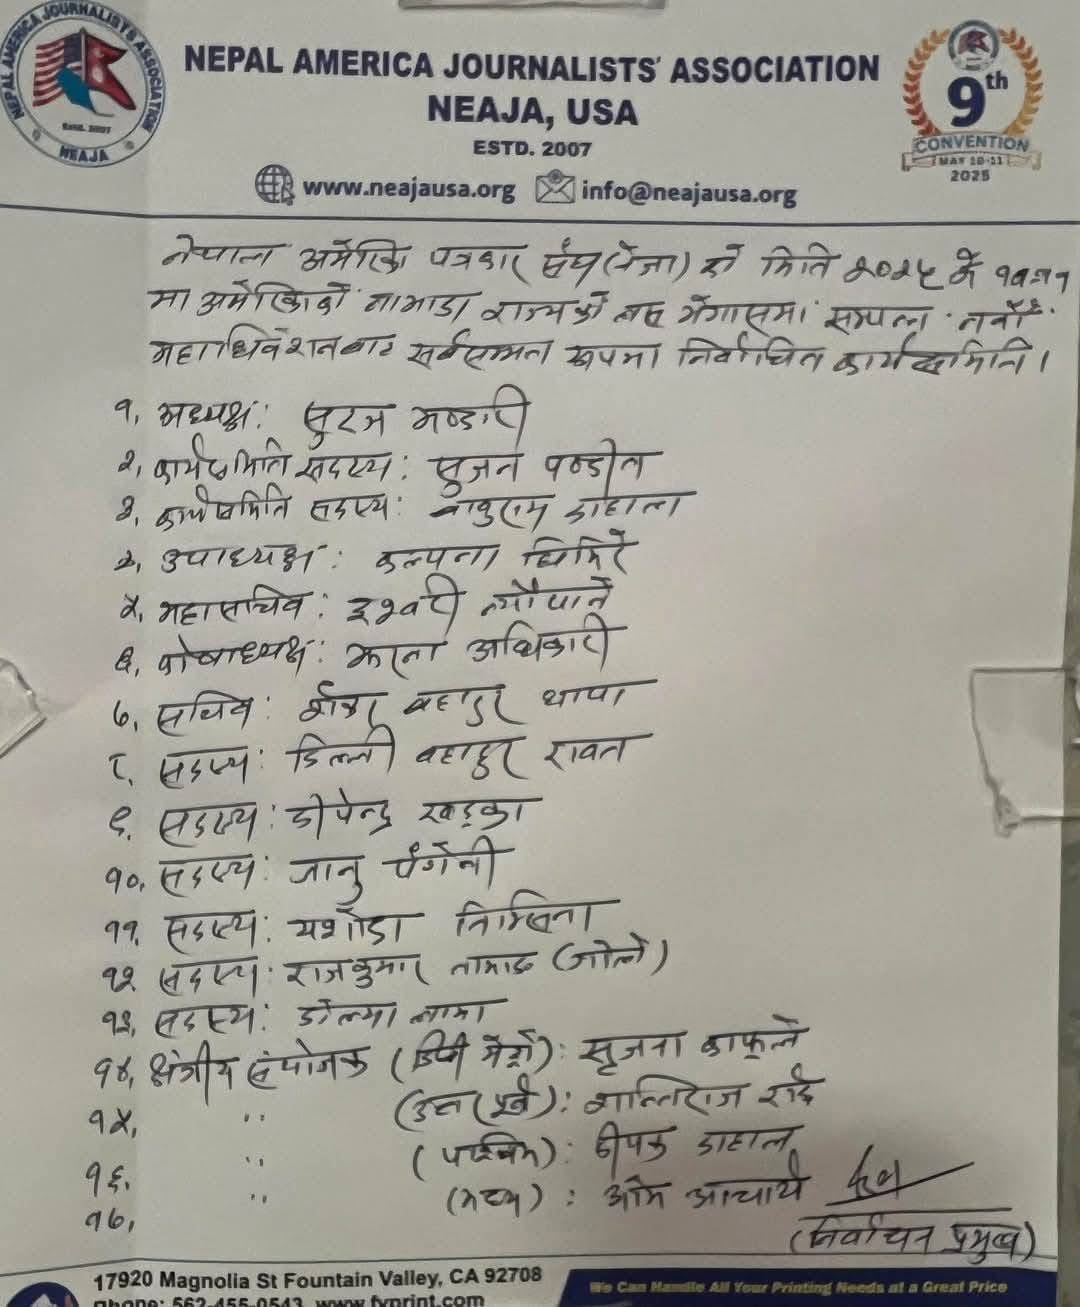 NEPAL AMERICA JOURNALISTS ASSOCIATION
ESTD. 2007
NEAJA
NEPAL AMERICA JOURNALISTS' ASSOCIATION
NEAJA, USA
ESTD. 2007
www.neajausa.org info@neajausa.org
9th
CONVENTION
MAY 10-11
2025
नेपाल अमेरिका पत्रकार संघ (नेजा) को मिति २०२५ मे १०-११
मा अमेरिकाको नाभाडा राज्यको लस भेगासमा सम्पन्न नवौं
महाधिवेशनबाट सर्वसम्मत रूपमा निर्वाचित कार्यसमिति।
१, अध्यक्ष: सुरज भण्डारी
२, कार्यसमिति सदस्य: सुजन पण्डीत
३, कार्यसमिति सदस्य: बाबुराम दाहाल
४, उपाध्यक्ष: कल्पना घिमिरे
५, महासचिव: इश्वरी न्यौपाने
६, कोषाध्यक्ष: झरना अधिकारी
७, सचिव: शंकर बहादुर थापा
८, सदस्य: डिल्ली बहादुर रावत
९, सदस्य: दीपेन्द्र खड्का
१०, सदस्य: जानु पंगेनी
११, सदस्य: यशोदा तिम्सिना
१२ सदस्य: राजकुमार तामाङ (गोले)
१३, सदस्य: डोल्मा लामा
१४, क्षेत्रीय संयोजक (डिसी मेट्रो): सृजना काफ्ले
१५, " (उत्तर पूर्व): शान्तिराज
१६. " (पश्चिम): दीपक दाहाल
१७, " (मध्य): ओम आचार्य
(निर्वाचन प्रमुख)
17920 Magnolia St Fountain Valley, CA 92708
Phone: 562-455-0543 www.fvprint.com
We Can Handle All Your Printing Needs at a Great Price